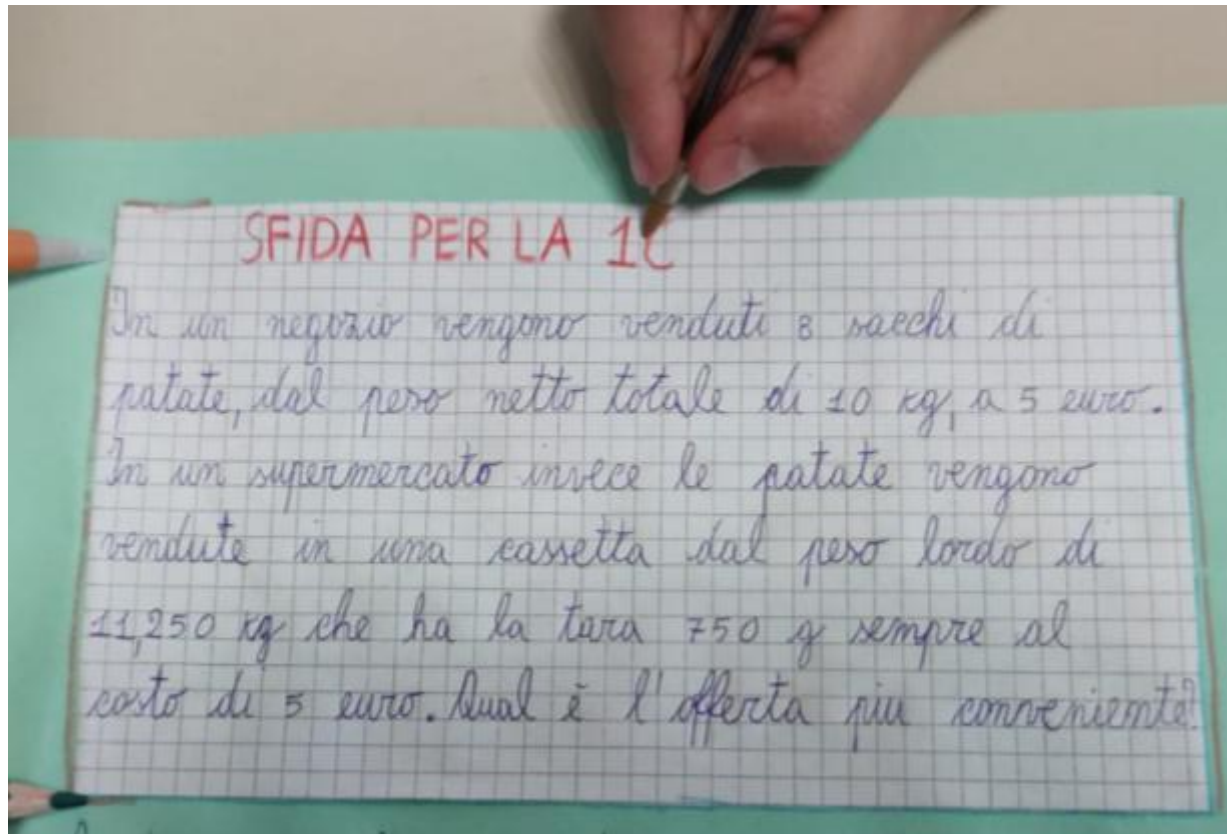 SFIDA PER LA 1C
In un negozio vengono venduti 8 sacchi di
patate, dal peso netto totale di 10 kg, a 5 euro.
In un supermercato invece le patate vengono
vendute in una cassetta dal peso lordo di
11,250 kg che ha la tara 750 g sempre al
costo di 5 euro. Qual è l'offerta più conveniente?